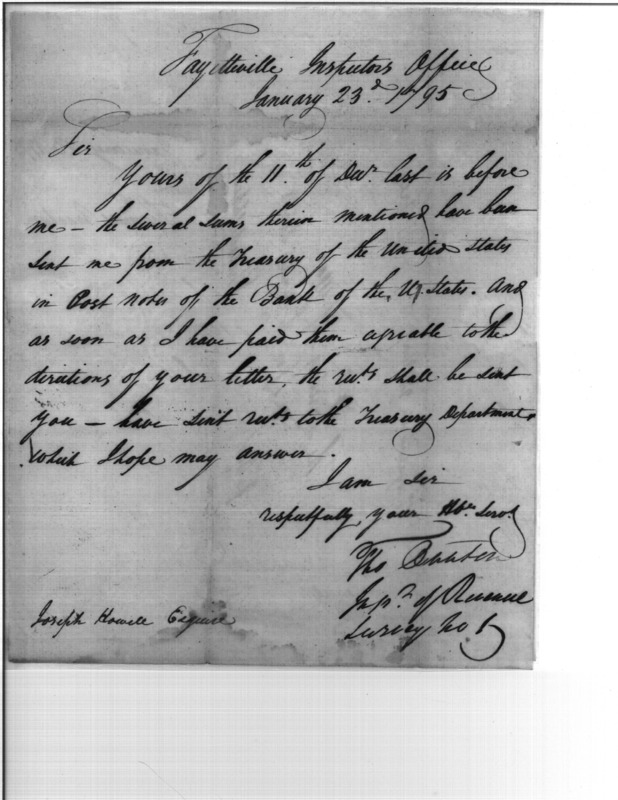 Fayetteville Inspectors Office
January 23.d 1795
Sir
Yours of the 11.th of Decr. last is before
me – the several sums therein mentioned have been
sent me from the Treasury of the United States
in Post notes of the Bank of the U. States. And
as soon as I have paid them agreable to the
directions of your letter, the rects. shall be sent
you – have sent rects. to the Treasury Department,
which I hope may answer.
I am sir
respectfully your Hbe. Servt.
Tho
Inspr. of Revenue
Survey No
Joseph Howell Esquire